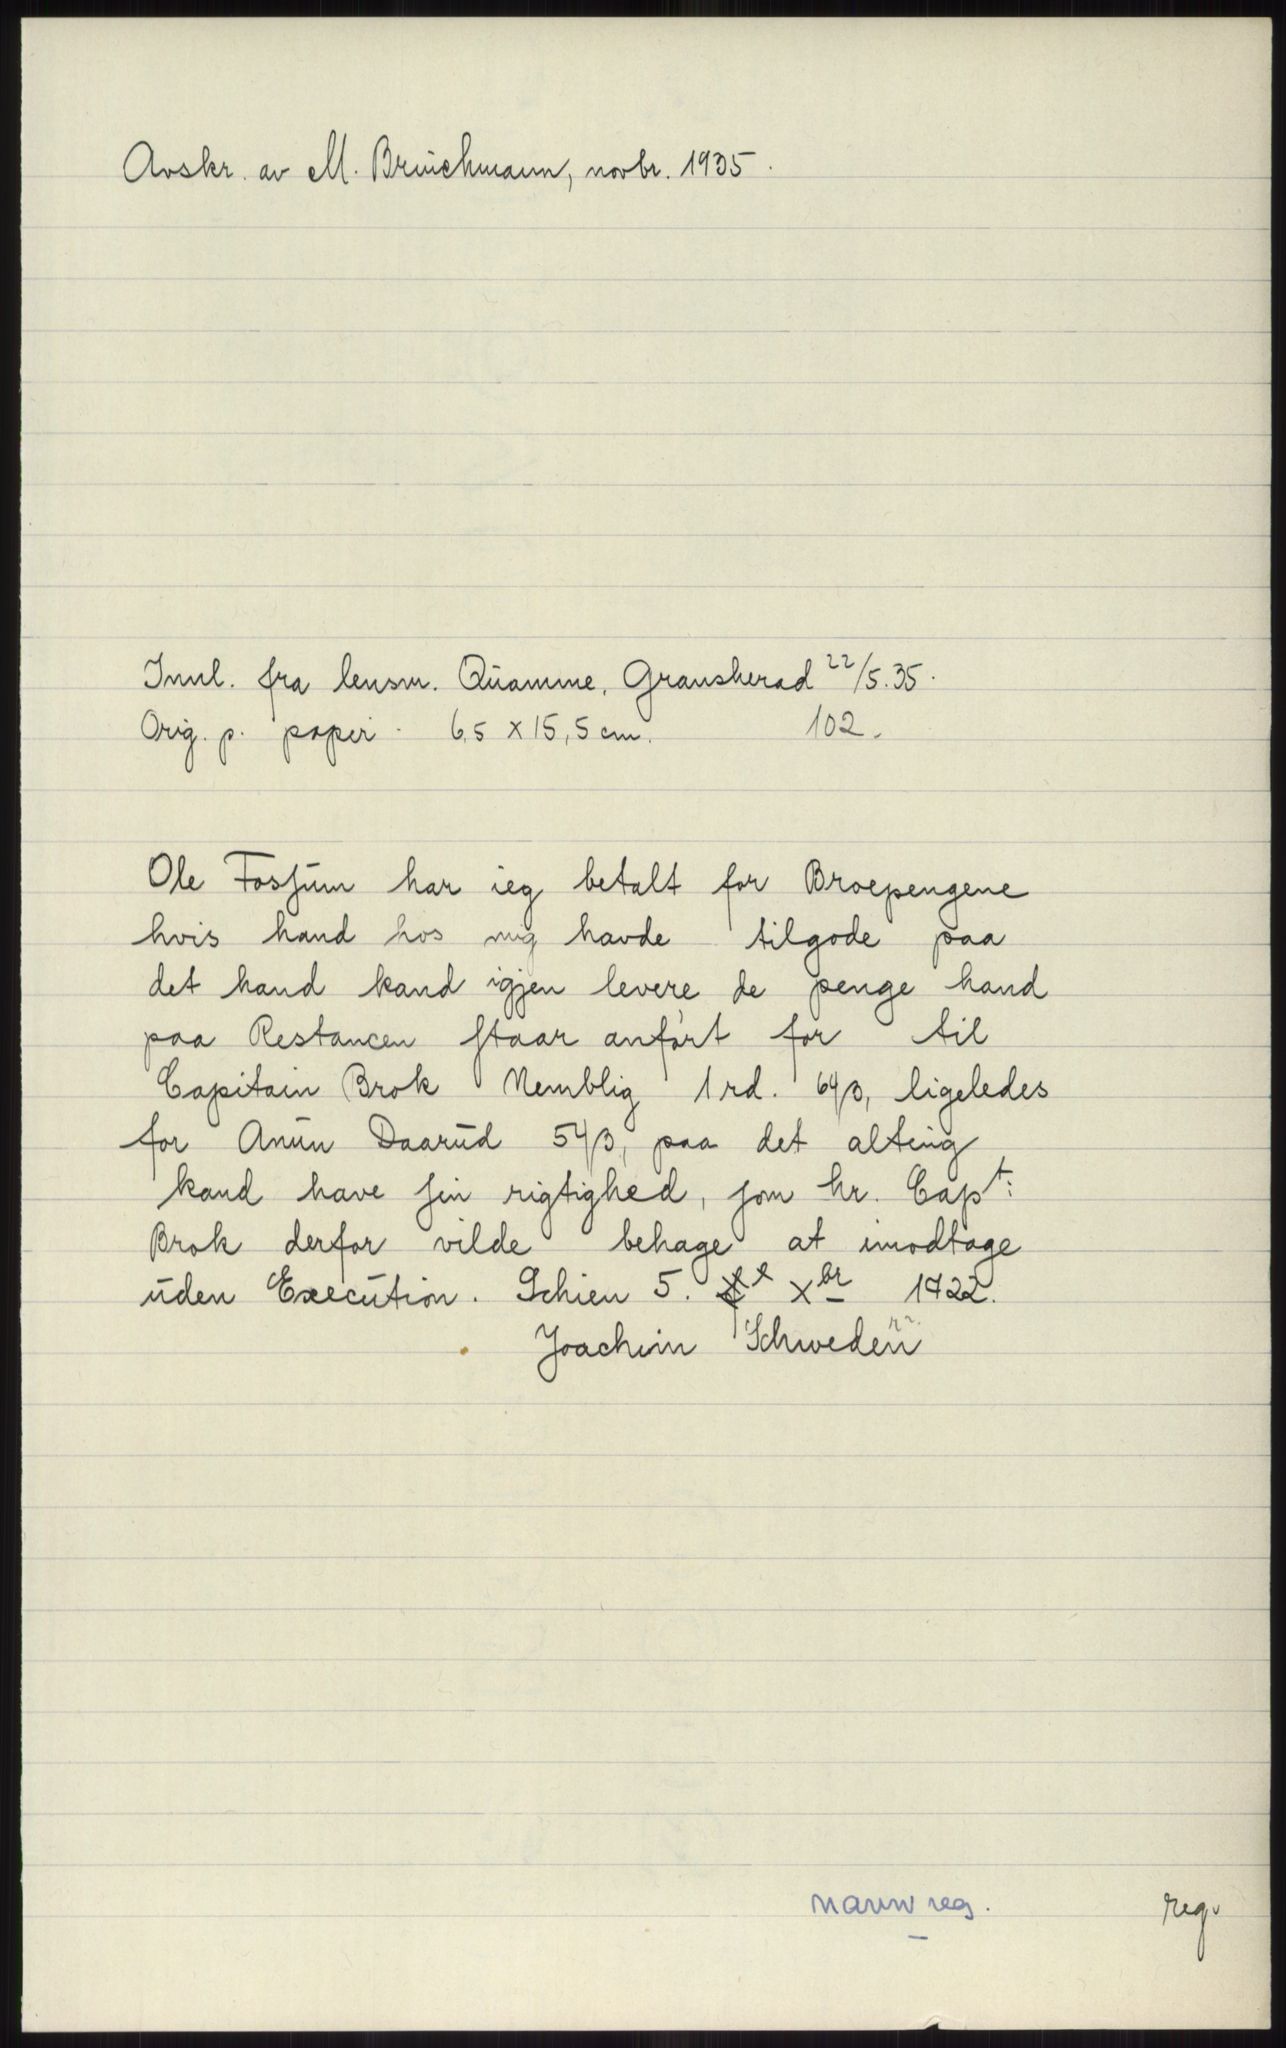 Avskr. av M. Brüichmann, novbr. 1935.
Innl. fra lensm. Qŭamme, Gransherad 22/5.35.
Orig. p. papir. 6,5 x 15,5 cm. 102.
Ole Fossŭm har ieg betalt for Broepengene
hvis hand hos mig havde tilgode paa
det hand kand igjen levere de penge hand
paa Restancen staar anført for til
Capitain Brok Nemblig 1 rd. 64 β, ligeledes
for Anŭn Daarŭd 54 β, paa det alting
kand have sin rigtighed, som hr. Capt:
Brok derfor vilde behage at imodtage
ŭden Execŭtion. Schien 5. Xbr 1722.
Joachim Schweden
navnreg. reg.